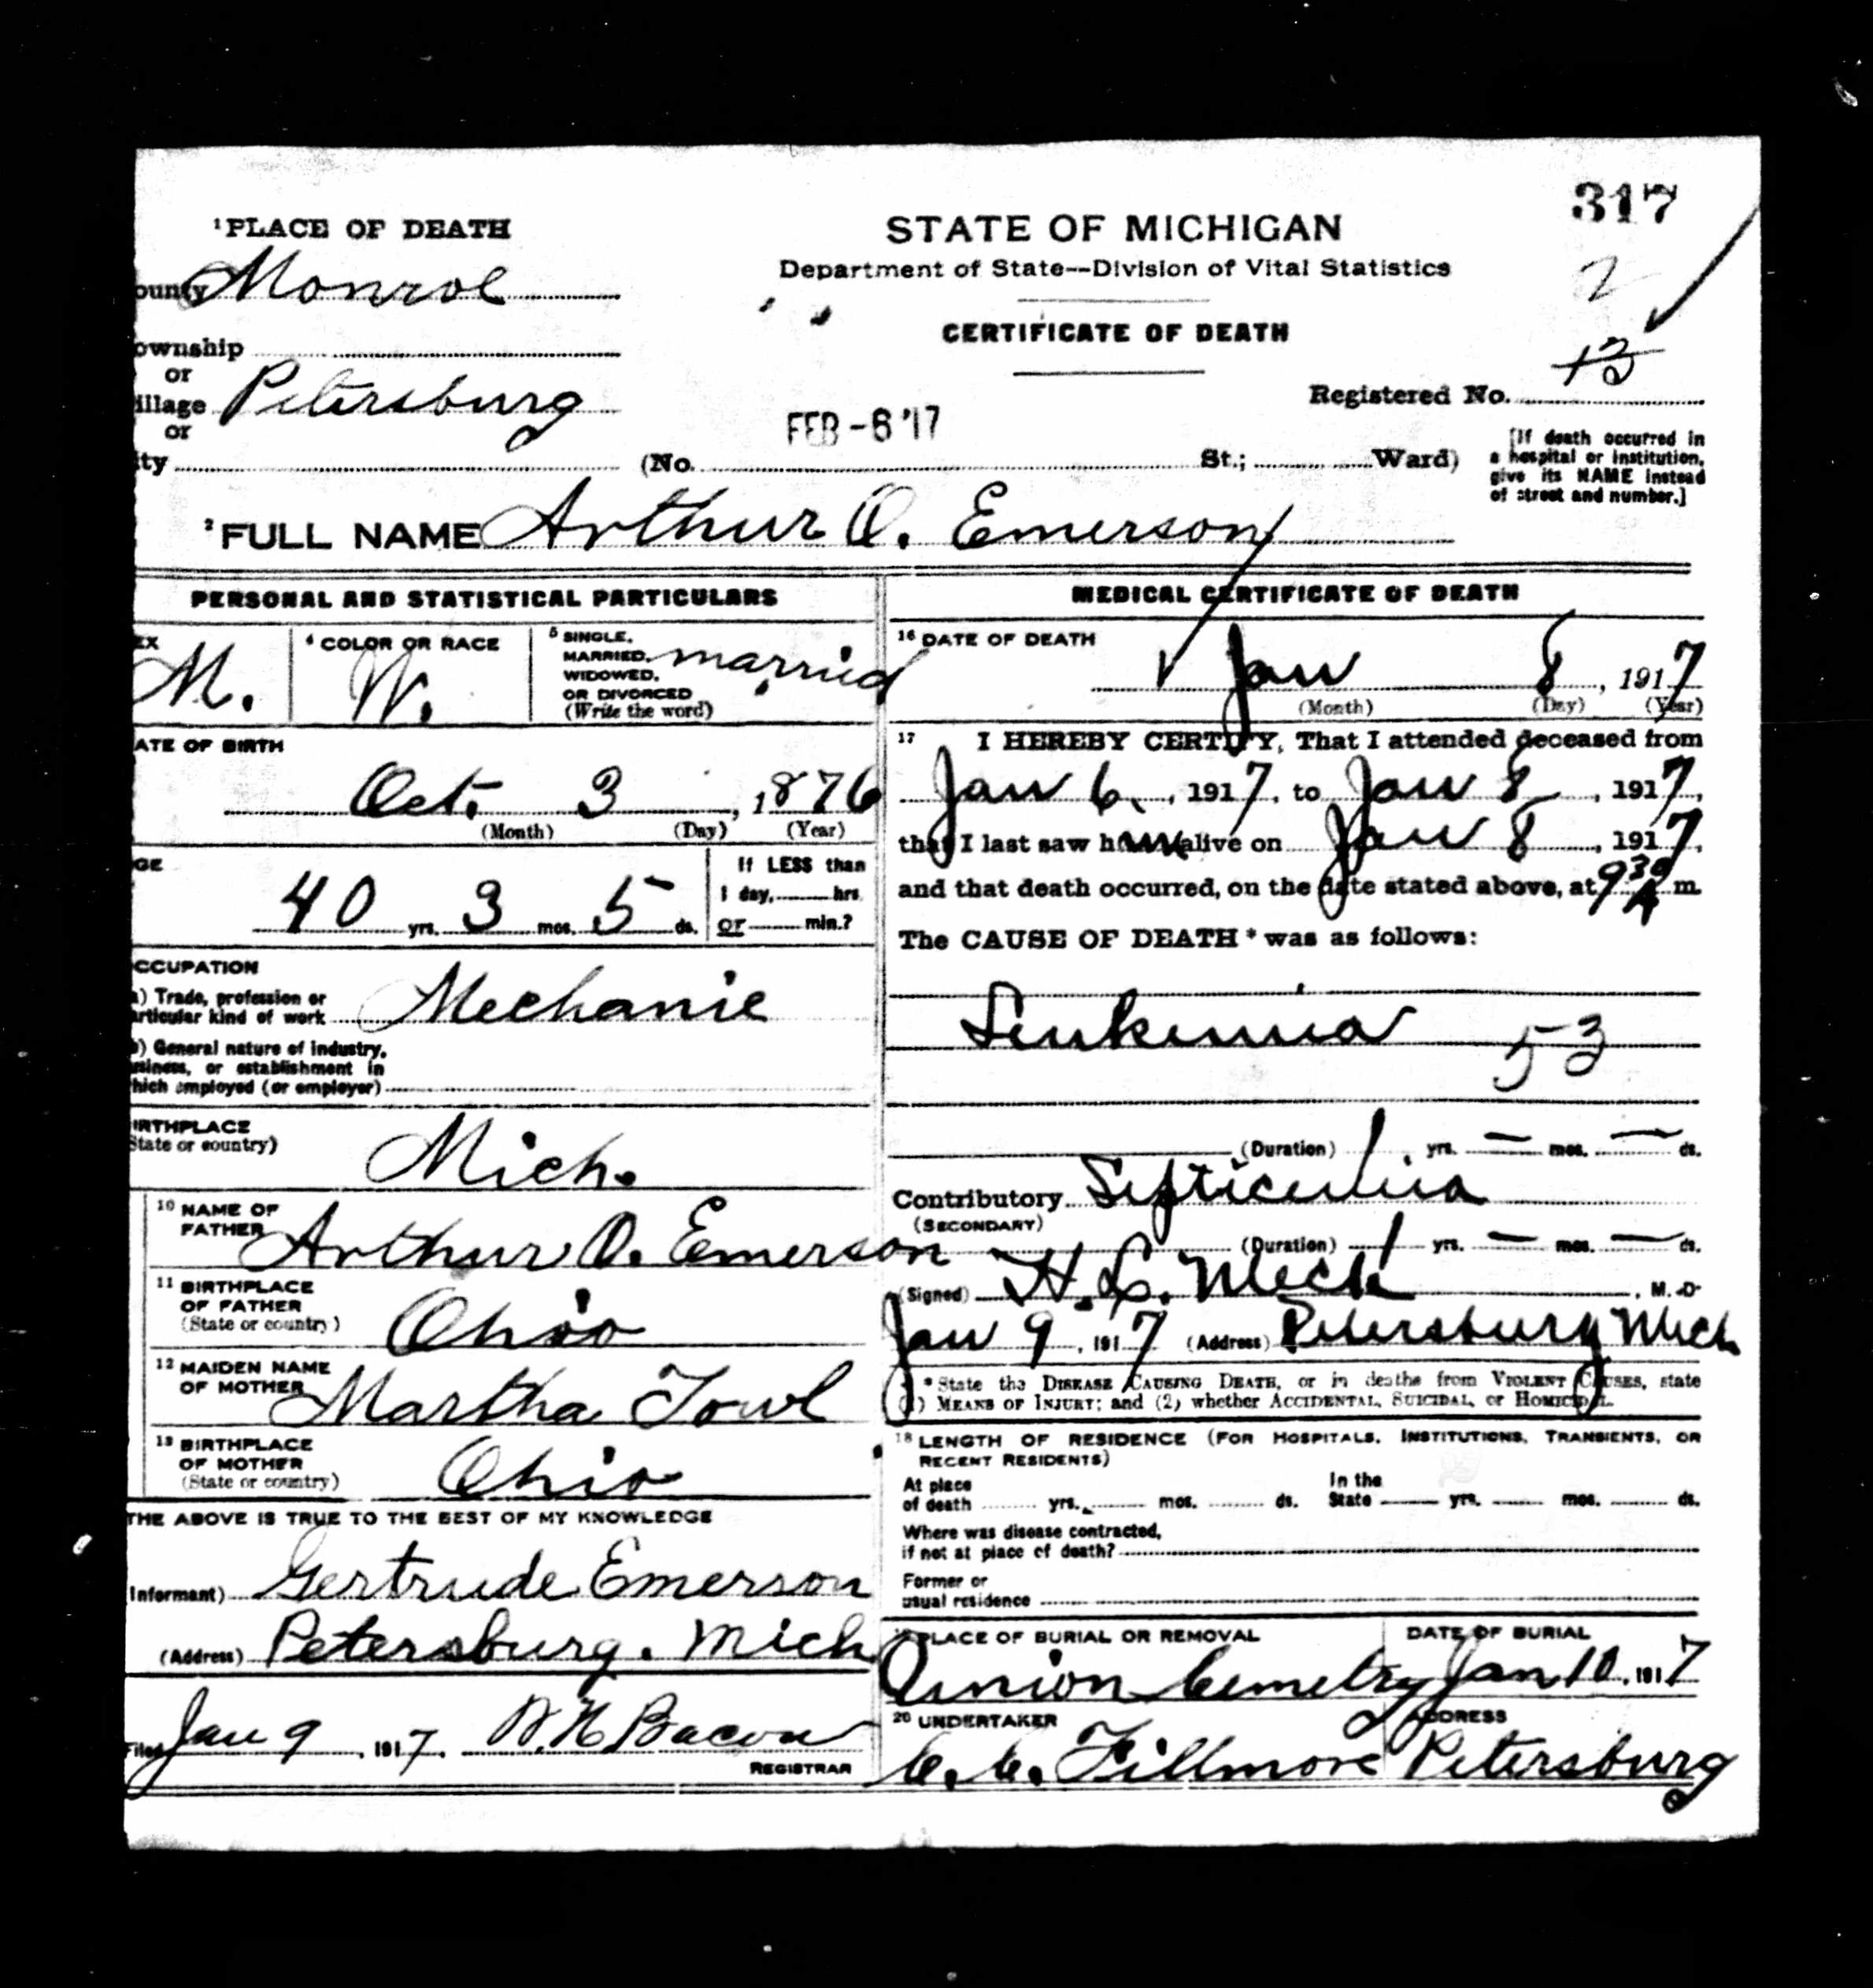 317
¹PLACE OF DEATH
STATE OF MICHIGAN
2
ounty Monroe
Department of State--Division of Vital Statistics
CERTIFICATE OF DEATH
ownship
or
illage Petersburg
or
13
Registered No.
FEB -6 '17
ity (No. St.; Ward)
[If death occurred in
a hospital or institution,
give its NAME instead
of street and number.]
² FULL NAME Arthur O. Emerson
PERSONAL AND STATISTICAL PARTICULARS
EX
M.
⁴ COLOR OR RACE
W.
⁵ SINGLE,
MARRIED,
WIDOWED,
OR DIVORCED
(Write the word)
married
ATE OF BIRTH
Oct. 3, 1876
(Month) (Day) (Year)
GE
40 yrs. 3 mos. 5 ds.
If LESS than
1 day, hrs.
or min.?
CCUPATION
) Trade, profession or
articular kind of work Mechanic
) General nature of industry,
usiness, or establishment in
hich employed (or employer)
IRTHPLACE
State or country)
Mich.
¹⁰ NAME OF
FATHER Arthur O. Emerson
¹¹ BIRTHPLACE
OF FATHER
(State or country)
Ohio
¹² MAIDEN NAME
OF MOTHER Martha Towl
¹³ BIRTHPLACE
OF MOTHER
(State or country)
Ohio
THE ABOVE IS TRUE TO THE BEST OF MY KNOWLEDGE
Informant) Gertrude Emerson
(Address) Petersburg. Mich
Filed Jan 9, 1917. Bacon
REGISTRAR
MEDICAL CERTIFICATE OF DEATH
¹⁶ DATE OF DEATH
Jan 8, 1917
(Month) (Day) (Year)
¹⁷ I HEREBY CERTIFY, That I attended deceased from
Jan 6, 1917, to Jan 8, 1917,
that I last saw him alive on Jan 8, 1917,
and that death occurred, on the date stated above, at 9 30 A m.
The CAUSE OF DEATH * was as follows:
Leukemia 53
(Duration) 1 yrs. — mos. — ds.
Contributory Septicemia
(SECONDARY)
(Duration) 1 yrs. — mos. — ds.
(Signed) H. L. Meck, M. D.
Jan 9, 1917 (Address) Petersburg Mich
* State the DISEASE CAUSING DEATH, or in deaths from VIOLENT CAUSES, state
(1) MEANS OF INJURY; and (2) whether ACCIDENTAL, SUICIDAL, or HOMICIDAL.
¹⁸ LENGTH OF RESIDENCE (FOR HOSPITALS, INSTITUTIONS, TRANSIENTS, OR
RECENT RESIDENTS)
At place
of death yrs. mos. ds.
In the
State yrs. mos. ds.
Where was disease contracted,
if not at place of death?
Former or
usual residence
PLACE OF BURIAL OR REMOVAL
Union Cemetry
DATE OF BURIAL
Jan 10, 1917
²⁰ UNDERTAKER
C. C. Fillmore
ADDRESS
Petersburg